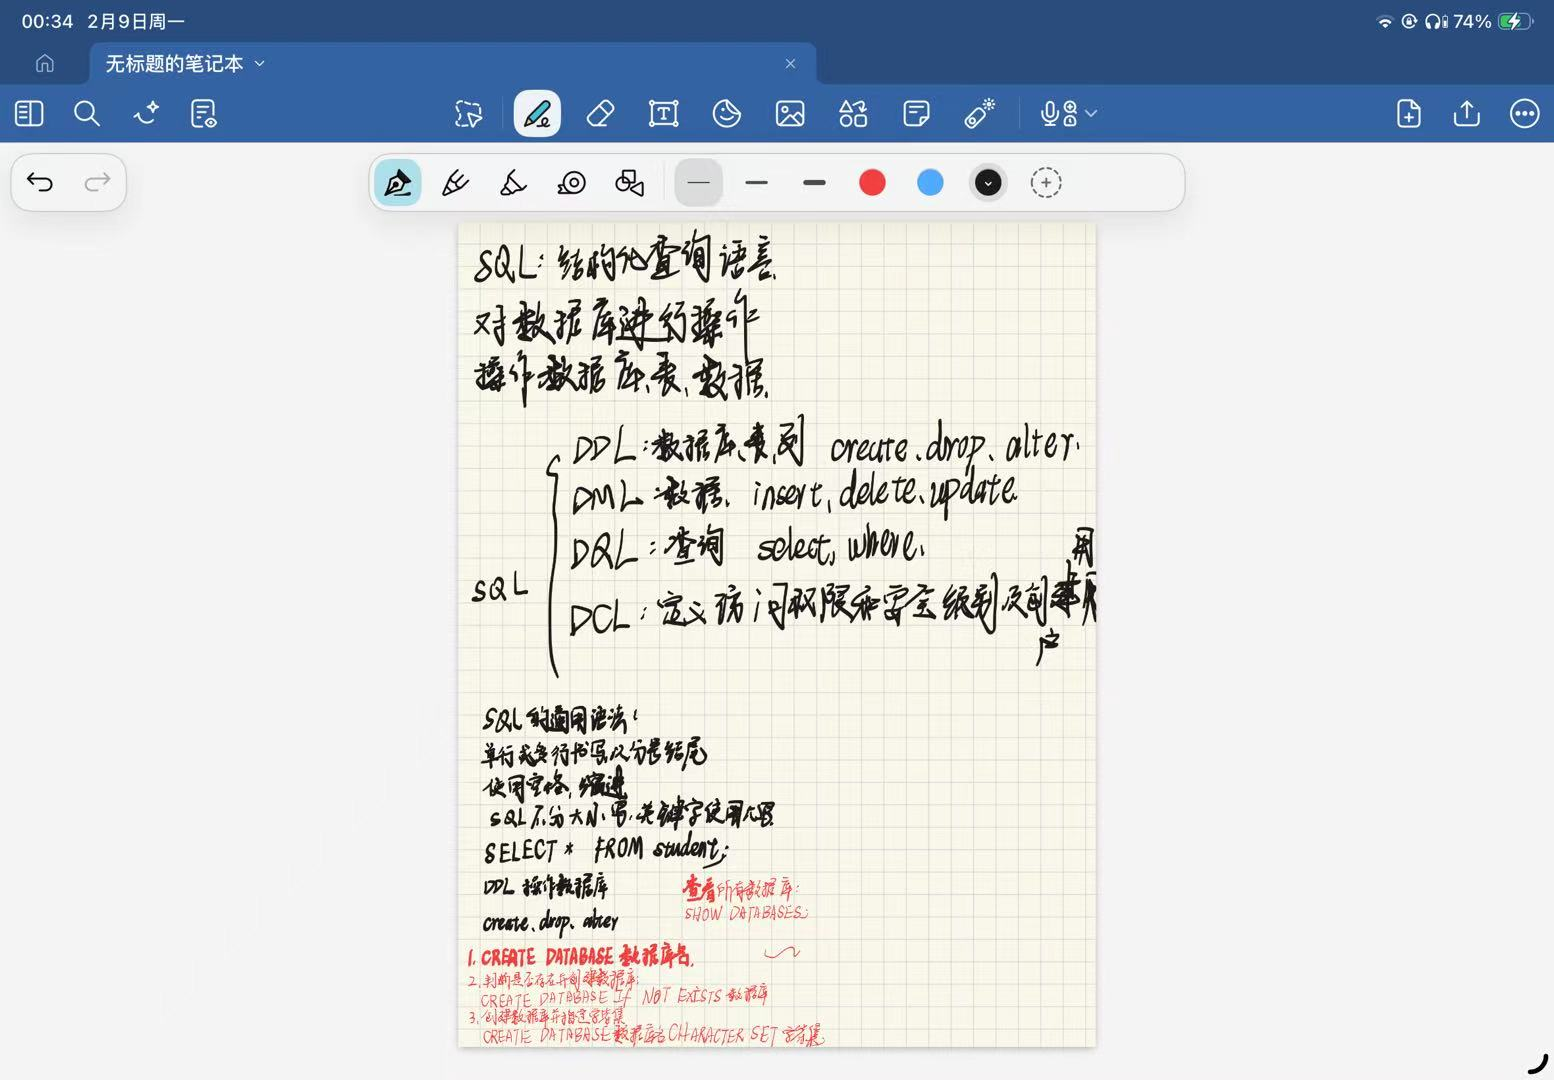 00:34 2月9日周一
74%
无标题的笔记本
SQL:结构化查询语言.
对数据库进行操作
操作数据库、表、数据.
SQL
DDL:数据库、表、列 create、drop、alter.
DML:数据. insert, delete、update.
DQL:查询 select, where.
DCL:定义访问权限和安全级别及创建用户
SQL的通用语法:
单行或多行书写,以分号结尾
使用空格,缩进
SQL不分大小写,关键字使用大写
SELECT * FROM student;
DDL 操作数据库
create、drop、alter
查看所有数据库:
SHOW DATABASES;
1. CREATE DATABASE 数据库名.
2. 判断是否存在并创建数据库:
CREATE DATABASE If NOT EXISTS 数据库
3. 创建数据库并指定字符集
CREATE DATABASE 数据库名 CHARACTER SET 字符集